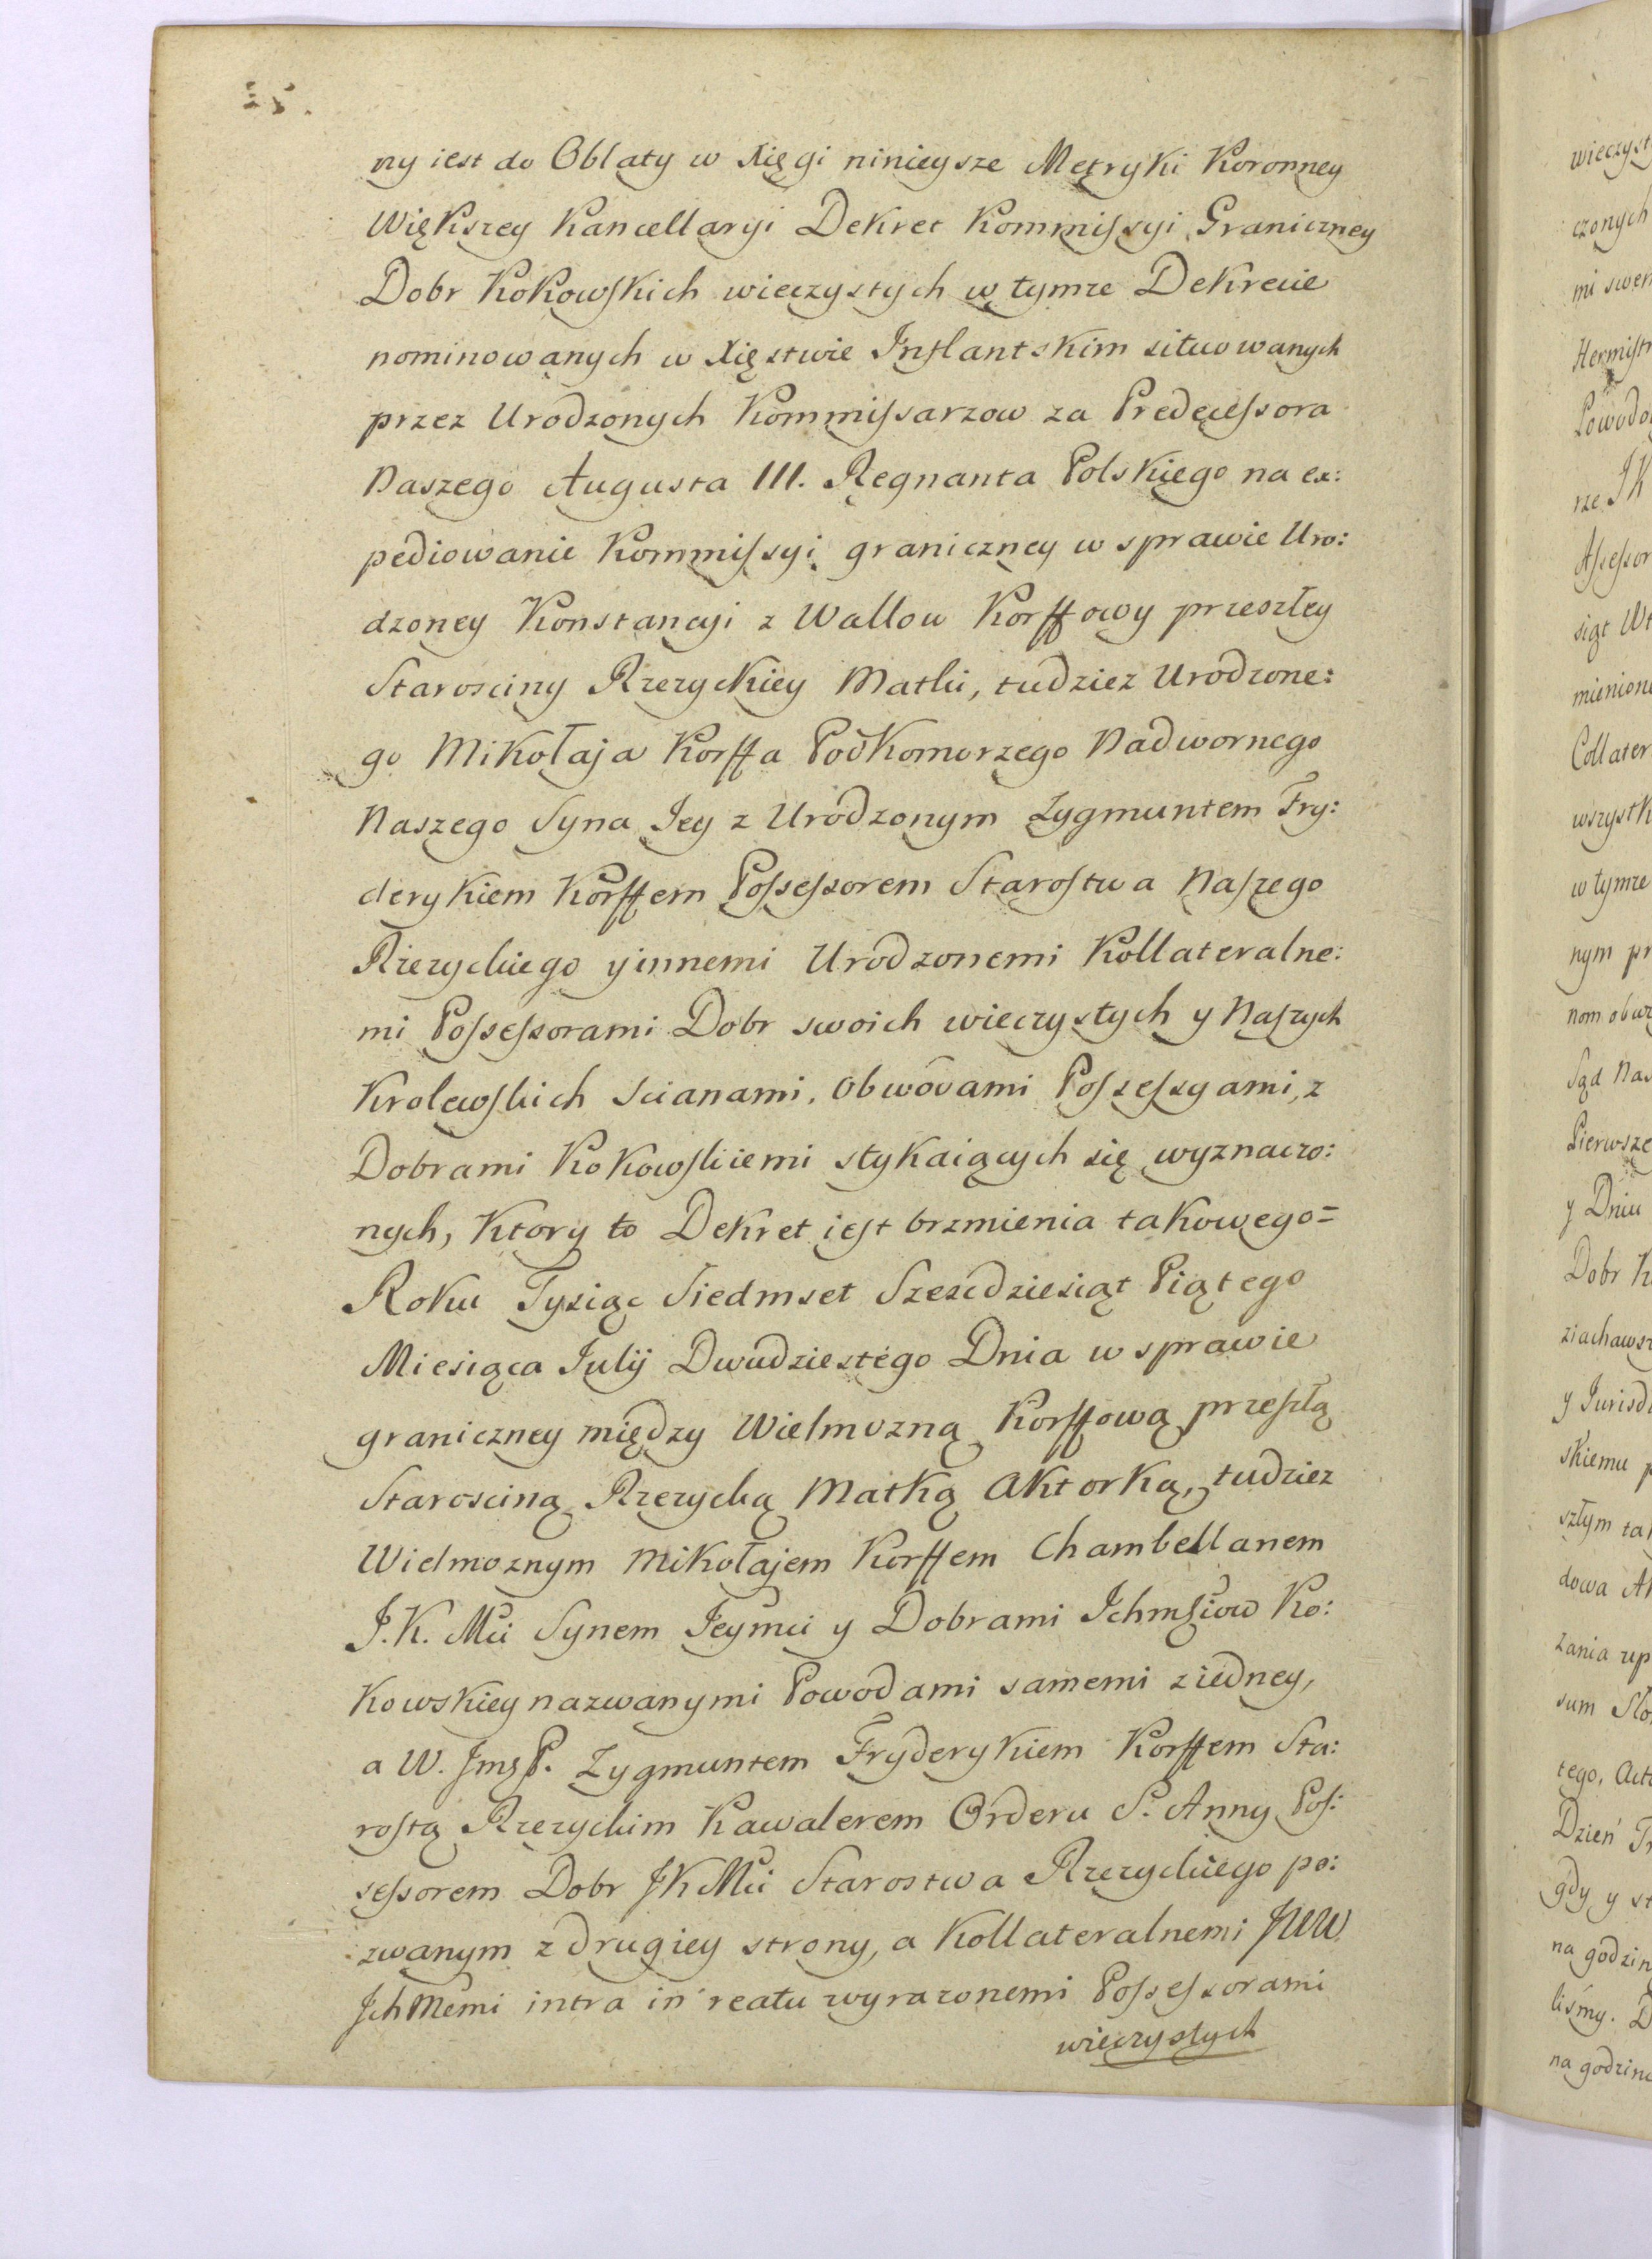 ny iest do Oblaty w Xięgi ninieysze Metryki Koronney
Większey Kancellaryi Dekret Kommissyi Graniczney
Dobr Kokowskich wieczystych w tymze Dekrecie
nominowanych w Xięstwie Inflantskim situowanych
przez Urodzonych Kommissarzow za Predecessora
Naszego Augusta III. Regnanta Polskiego na ex:
pediowanie Kommissyi graniczney w sprawie Uro:
dzoney Konstancyi z Wallow Korffowy przeszłey
Starosciny Rzezyckiey Matki, tudziez Urodzone:
go Mikołaja Korffa Podkomorzego Nadwornego
Naszego Syna Iey z Urodzonym Zygmuntem Fry:
derykiem Korffem Possessorem Starostwa Naszego
Rzezyckiego y innemi Urodzonemi Kollateralne:
mi Possessorami Dobr swoich wieczystych y Naszych
Krolewskich scianami, obwodami Possessyami, z
Dobrami Kokowskiemi stykaiących się wyznaczo:
nych, Ktory to Dekret iest brzmienia takowego=
Roku Tysiąc Siedmset Szescdziesiąt Piątego
Miesiąca Julij Dwudziestego Dnia w sprawie
graniczney między Wielmozną Korffową przeszłą
Starosciną Rzezycką Matką Aktorką, tudziez
Wielmoznym Mikołajem Korffem Chambellanem
J.K. Mci Synem Jeymci y Dobrami Ichmściow Ko:
kowskiey nazwanymi Powodami samemi z iedney,
a W. JmśP. Zygmuntem Fryderykiem Korffem Sta:
rostą Rzezyckim Kawalerem Orderu S. Anny Pos:
sessorem Dobr JKMci Starostwa Rzezyckiego po:
zwanym z drugiey strony, a Kollateralnemi JWW
Ichmemi intra in reatu wyrazonemi Possessorami
wieczystych